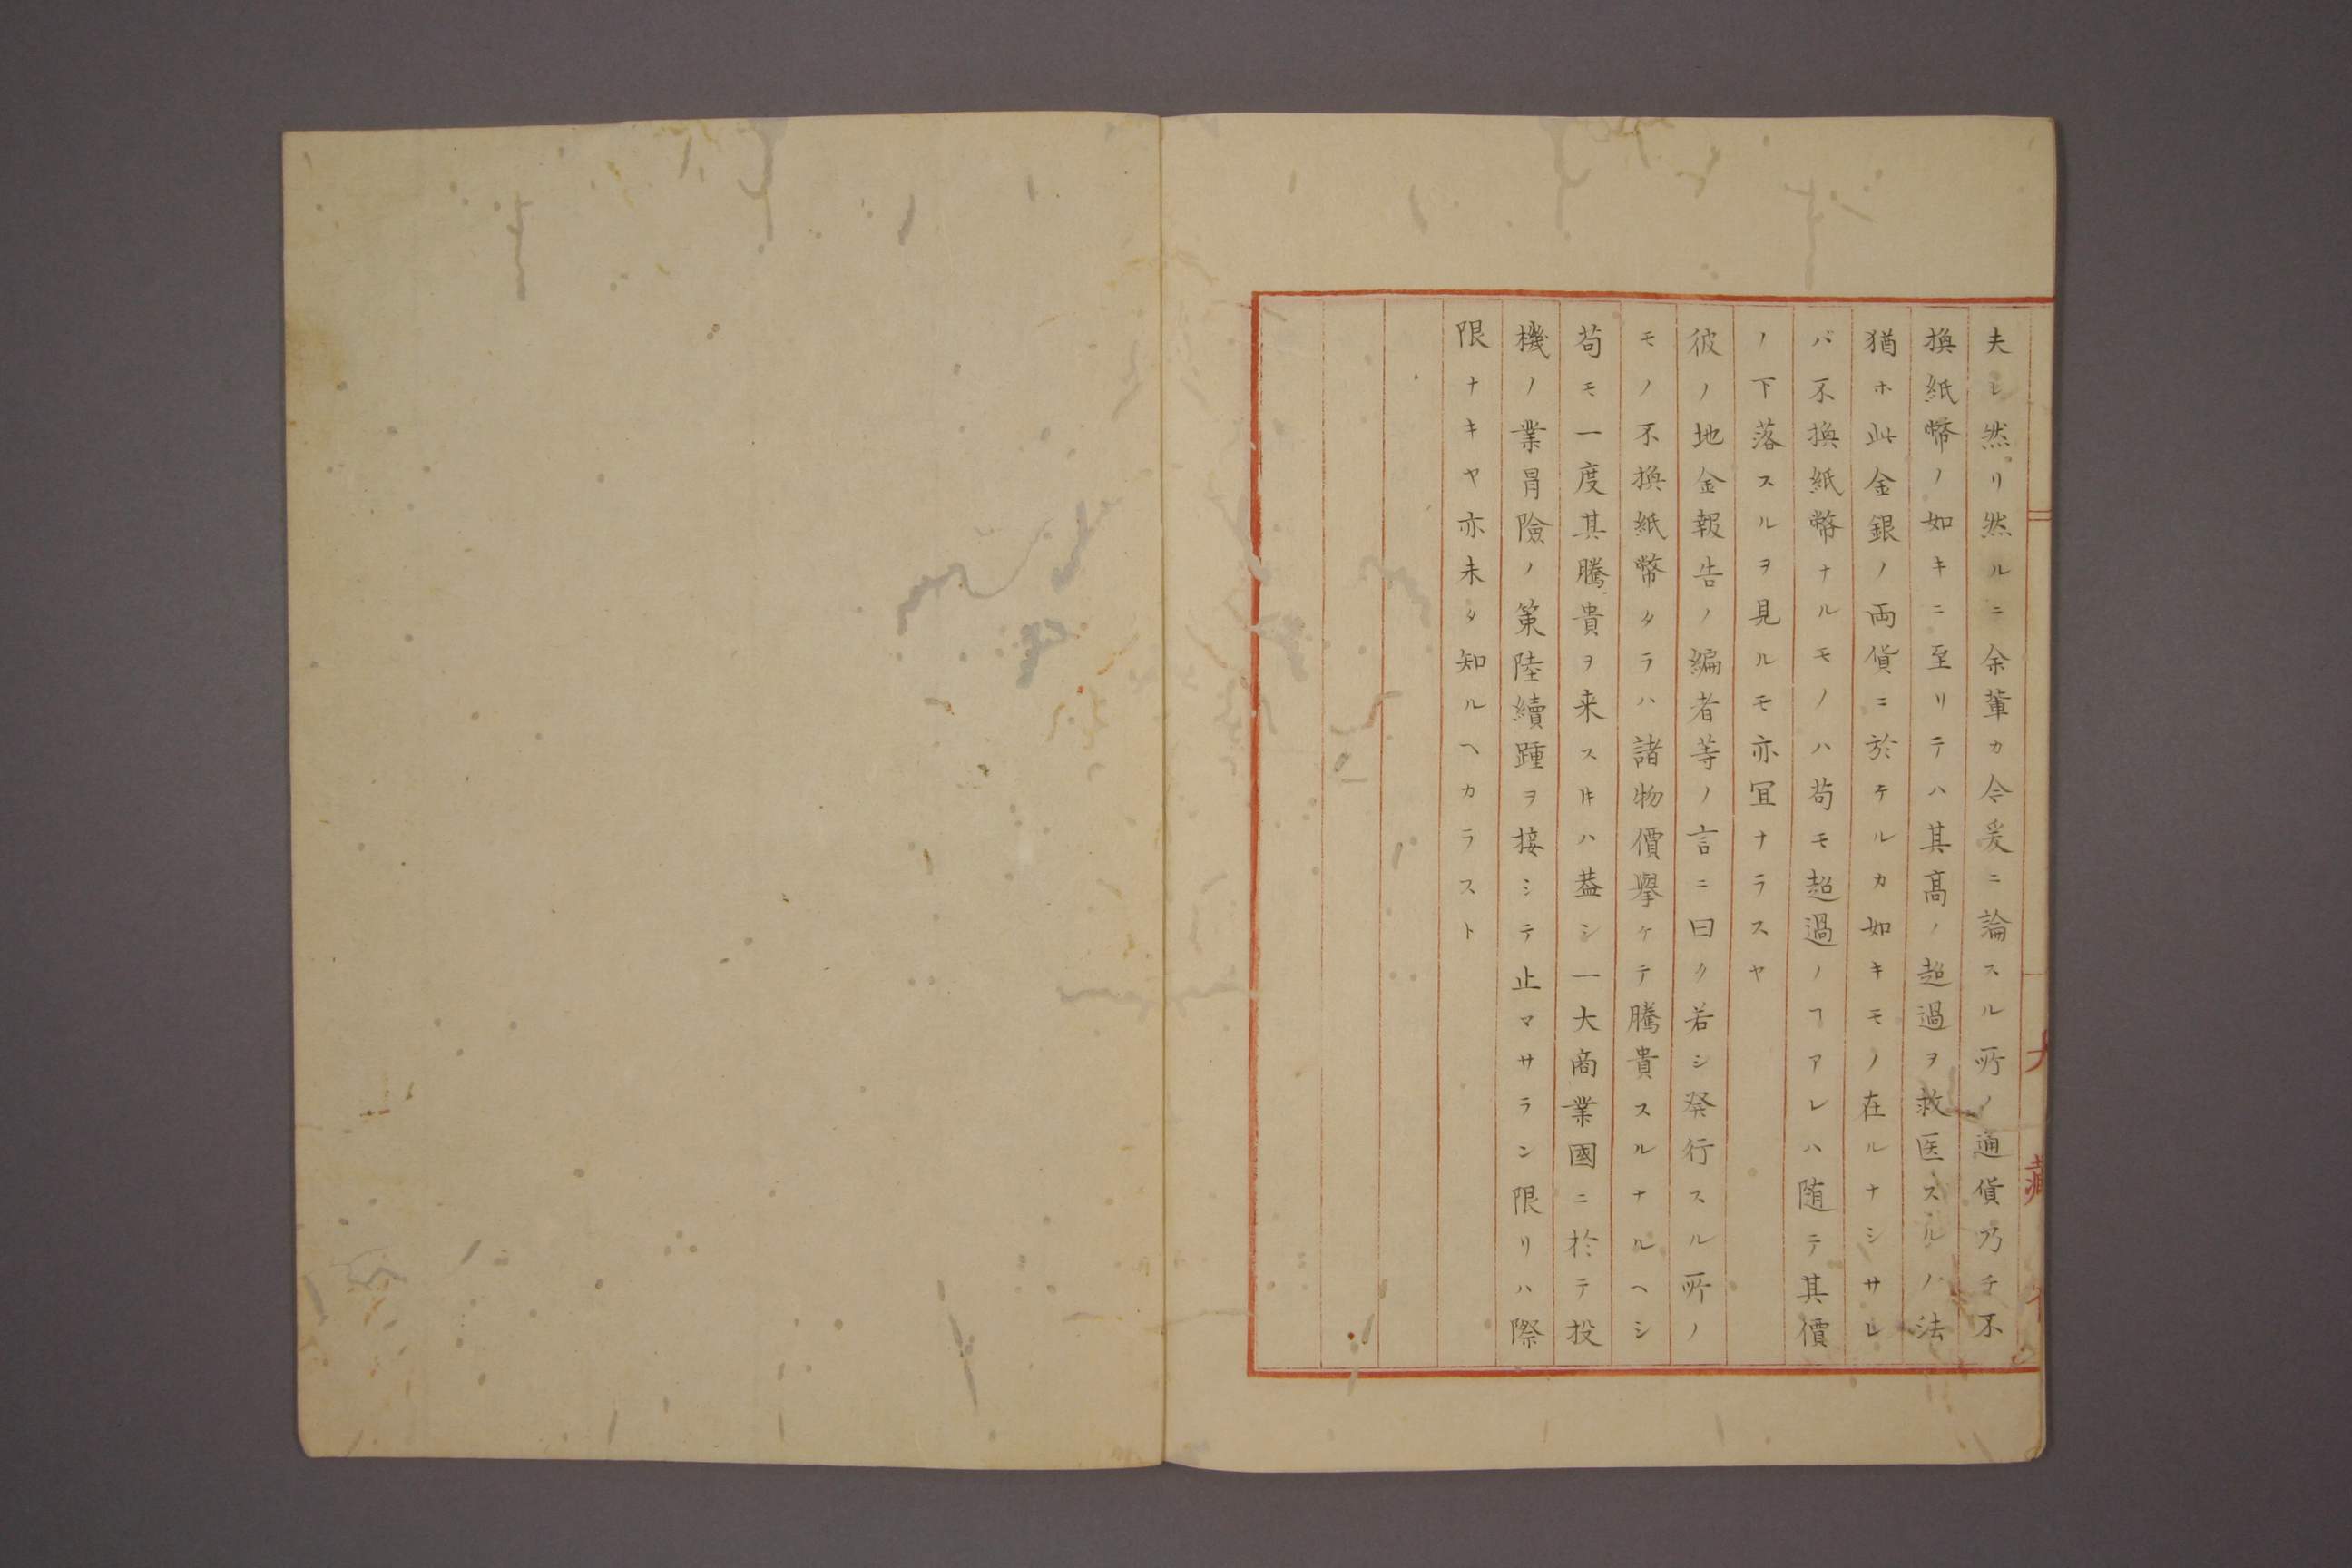 夫レ然リ然ルニ余輩カ今爰ニ論スル所ノ通貨乃チ不
換紙幣ノ如キニ至リテハ其髙ノ超過ヲ救医スルノ法
猶ホ此金銀ノ両貨ニ於ケルカ如キモノ在ルナシサレ
バ不換紙幣ナルモノハ苟モ超過ノヿアレハ随テ其價
ノ下落スルヲ見ルモ亦冝ナラスヤ
彼ノ地金報告ノ編者等ノ言ニ曰ク若シ発行スル所ノ
モノ不換紙幣タラハ諸物價擧ケテ騰貴スルナルヘシ
苟モ一度其騰貴ヲ来スㇳキハ葢シ一大商業國ニ於テ投
機ノ業冐險ノ策陸續踵ヲ接シテ止マサラン限リハ際
限ナキヤ亦未タ知ルヘカラスト
大藏